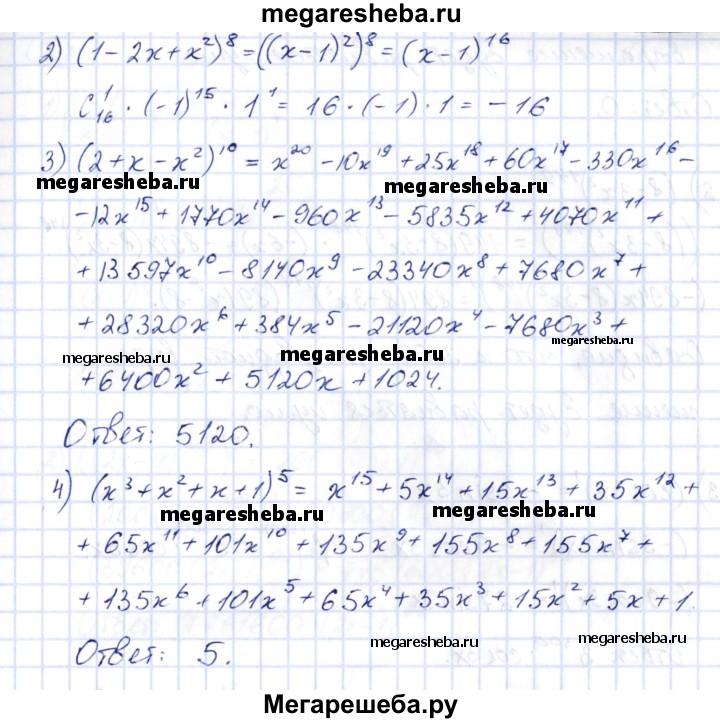 megaresheba.ru
2) (1 - 2x + x²)⁸ = ((x - 1)²)⁸ = (x - 1)¹⁶
C¹₁₆ · (-1)¹⁵ · 1¹ = 16 · (-1) · 1 = - 16
3) (2 + x - x²)¹⁰ = x²⁰ - 10x¹⁹ + 25x¹⁸ + 60x¹⁷ - 330x¹⁶ -
megaresheba.ru megaresheba.ru
- 12x¹⁵ + 1770x¹⁴ - 960x¹³ - 5835x¹² + 4070x¹¹ +
+ 13597x¹⁰ - 8140x⁹ - 23340x⁸ + 7680x⁷ +
+ 28320x⁶ + 384x⁵ - 21120x⁴ - 7680x³ +
megaresheba.ru megaresheba.ru megaresheba.ru
+ 6400x² + 5120x + 1024.
Ответ: 5120.
4) (x³ + x² + x + 1)⁵ = x¹⁵ + 5x¹⁴ + 15x¹³ + 35x¹² +
megaresheba.ru megaresheba.ru
+ 65x¹¹ + 101x¹⁰ + 135x⁹ + 155x⁸ + 155x⁷ +
+ 135x⁶ + 101x⁵ + 65x⁴ + 35x³ + 15x² + 5x + 1.
Ответ: 5.
megaresheba.ru megaresheba.ru
Мегарешеба.ру